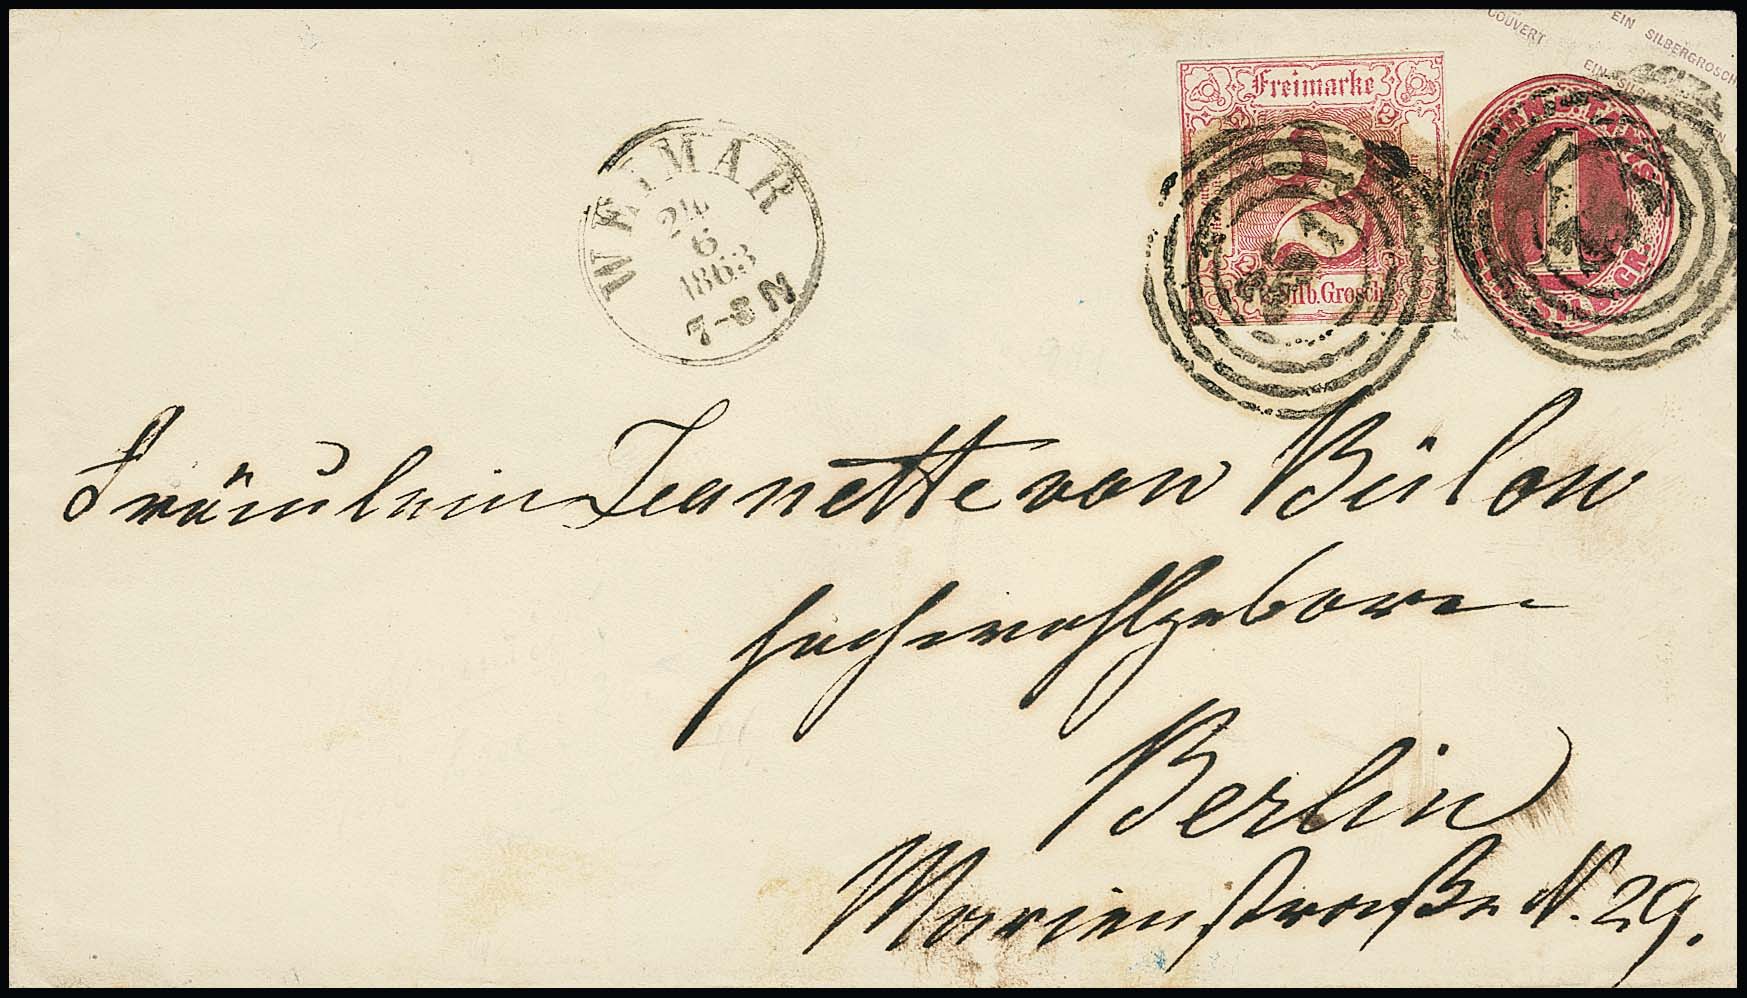 COUVERT
EIN SILBERGROSCH
EIN SILB
Freimarke
2
Silb.Grosch
1
SILB.GR.
WEIMAR
6
1863
7-8 N
Fräulein Jeanette von Bülow
hochwohlgeboren
Berlin
Marienstraße N. 29.